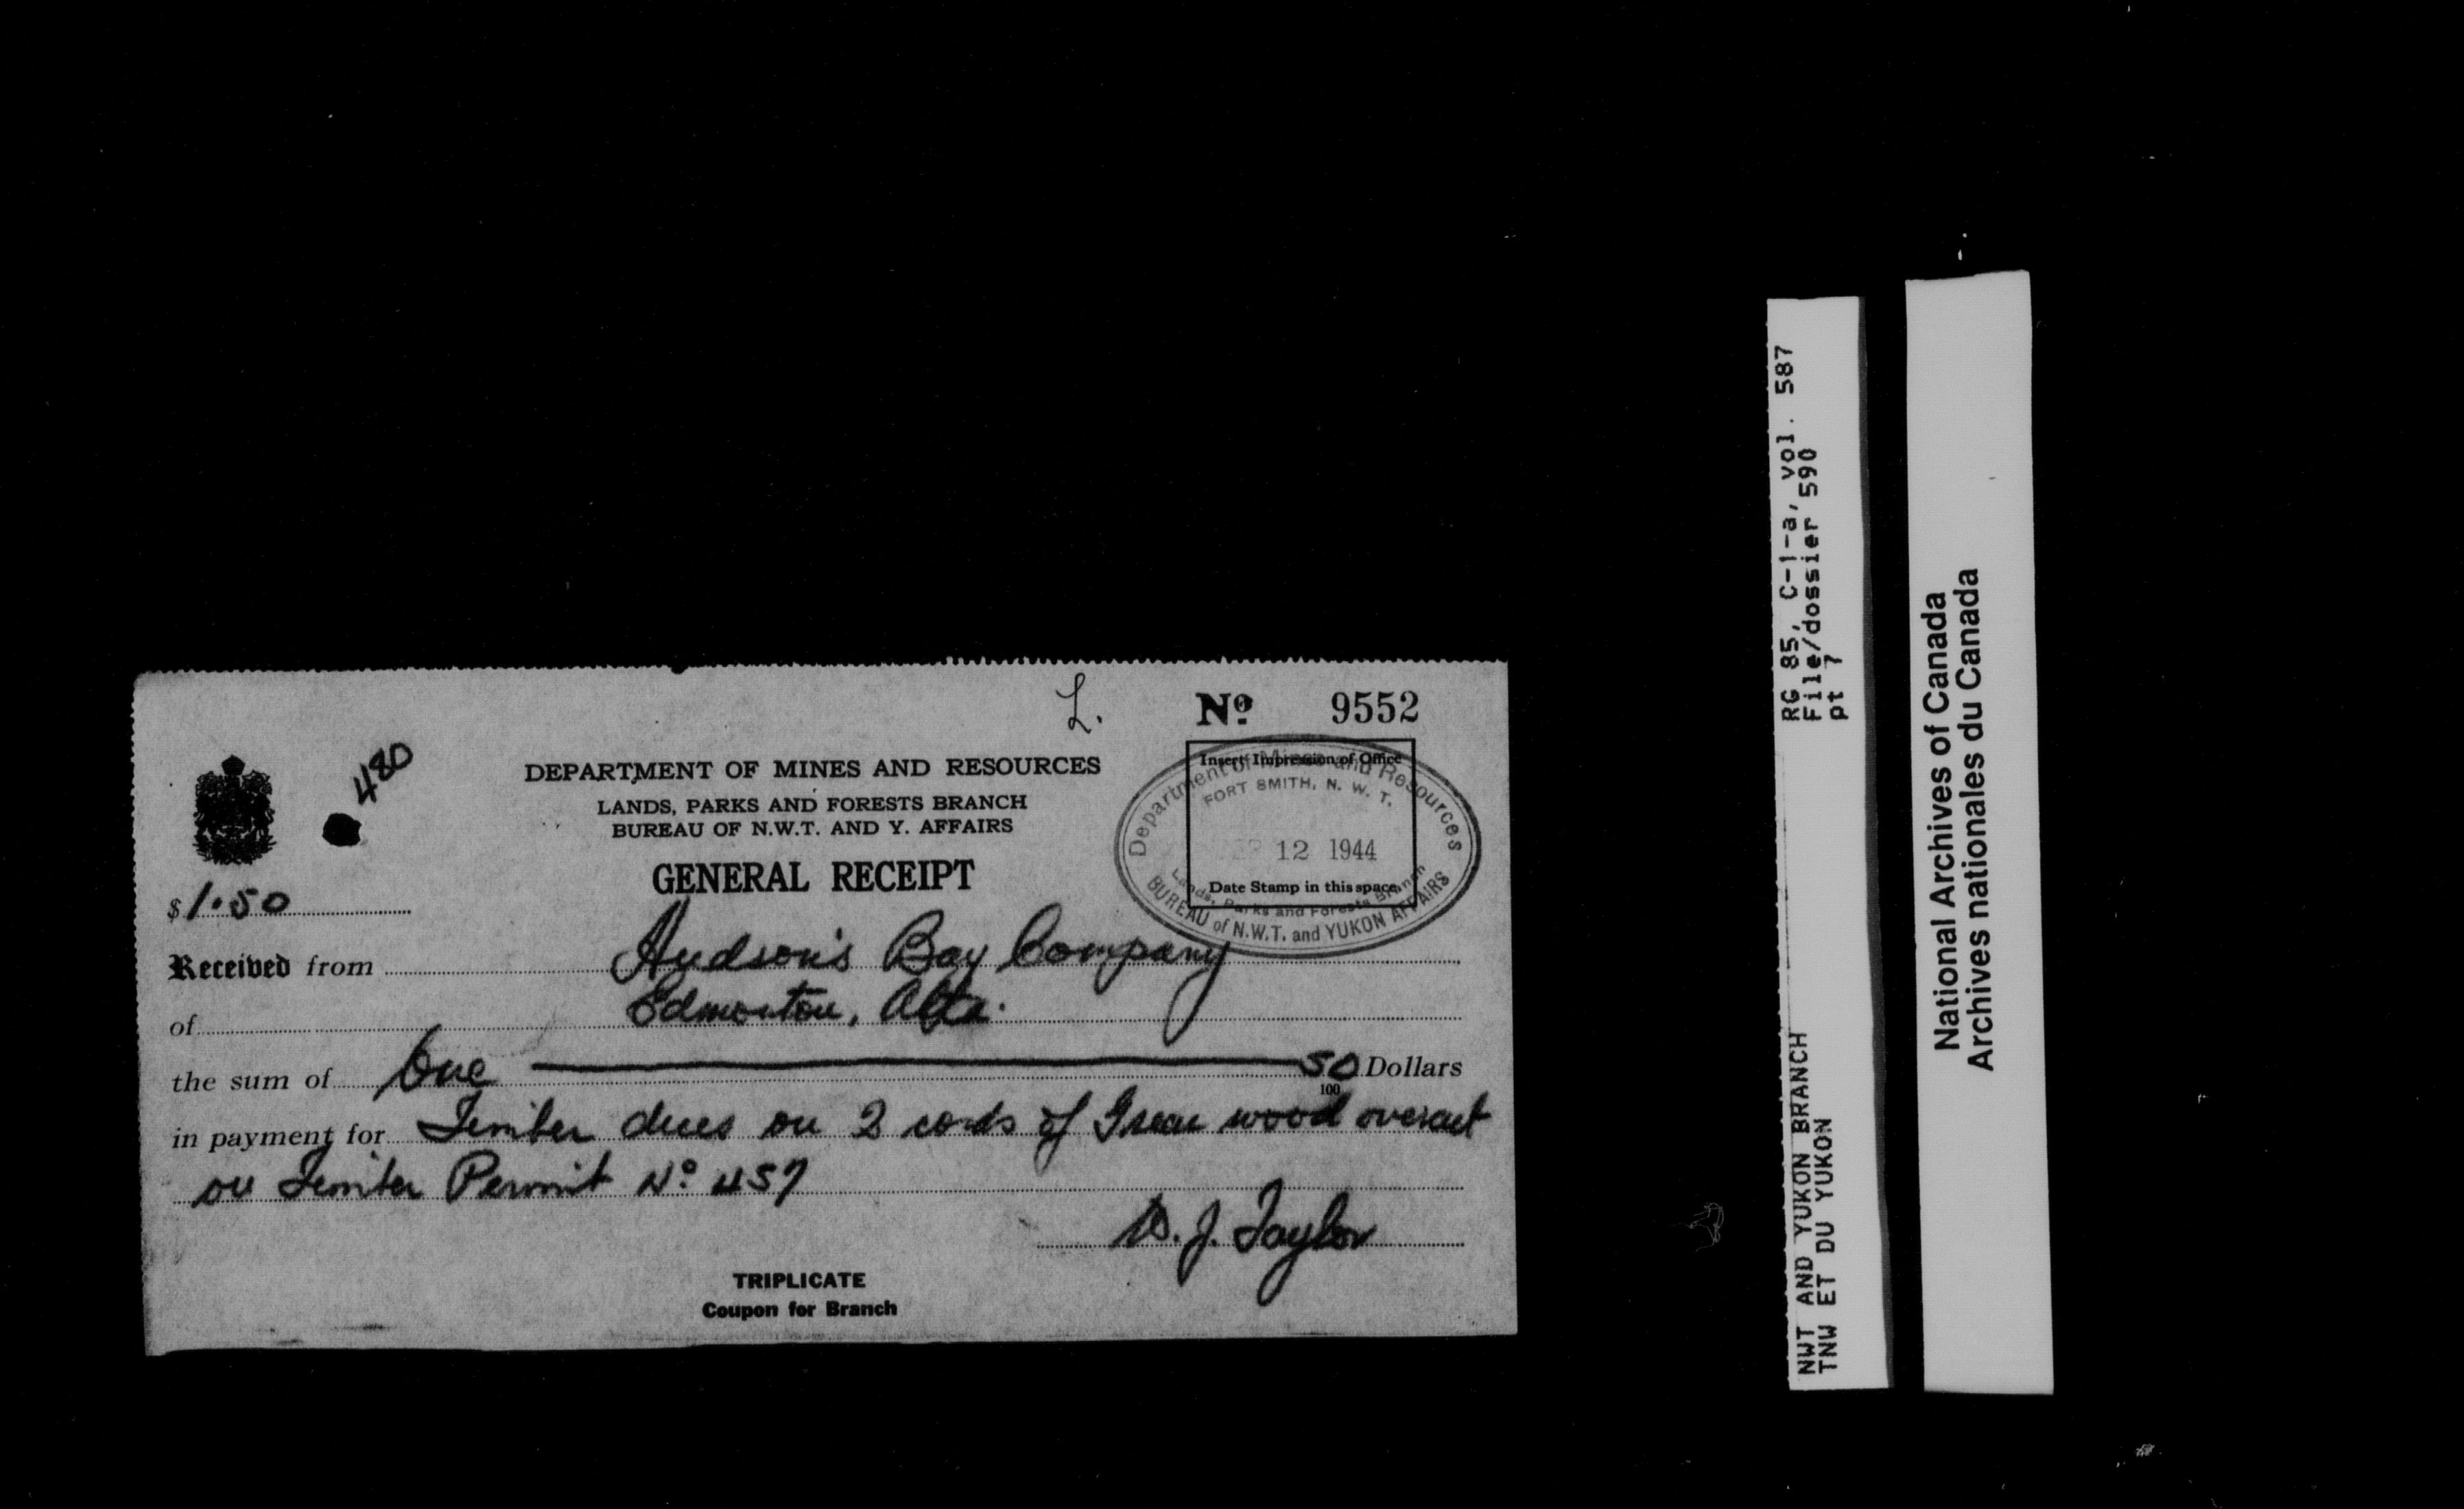 L.
Nº 9552
480
DEPARTMENT OF MINES AND RESOURCES
LANDS, PARKS AND FORESTS BRANCH
BUREAU OF N.W.T. AND Y. AFFAIRS
GENERAL RECEIPT
Insert Impression of Office
Department of Mines and Resources
FORT SMITH, N. W. T.
12 1944
Date Stamp in this space
Lands, Parks and Forests Branch
BUREAU of N.W.T. and YUKON AFFAIRS
$ 1.50
Received from Hudson's Bay Company
of Edmonton, Alta.
the sum of One 50/100 Dollars
in payment for Timber dues on 2 cords of Green wood overcut
on Timber Permit Nº 457
D. J. Taylor
TRIPLICATE
Coupon for Branch
RG 85, C-1-a, vol. 587
File/dossier 590
pt 7
NWT AND YUKON BRANCH
TNW ET DU YUKON
National Archives of Canada
Archives nationales du Canada